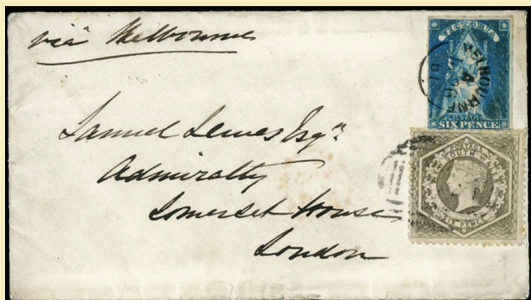 via Melbourne
VICTORIA
MELBOURNE
POSTAGE
SIX PENCE
Samuel Lewes Esqre
Admiralty
Somerset House
London
POSTAGE
SOUTH